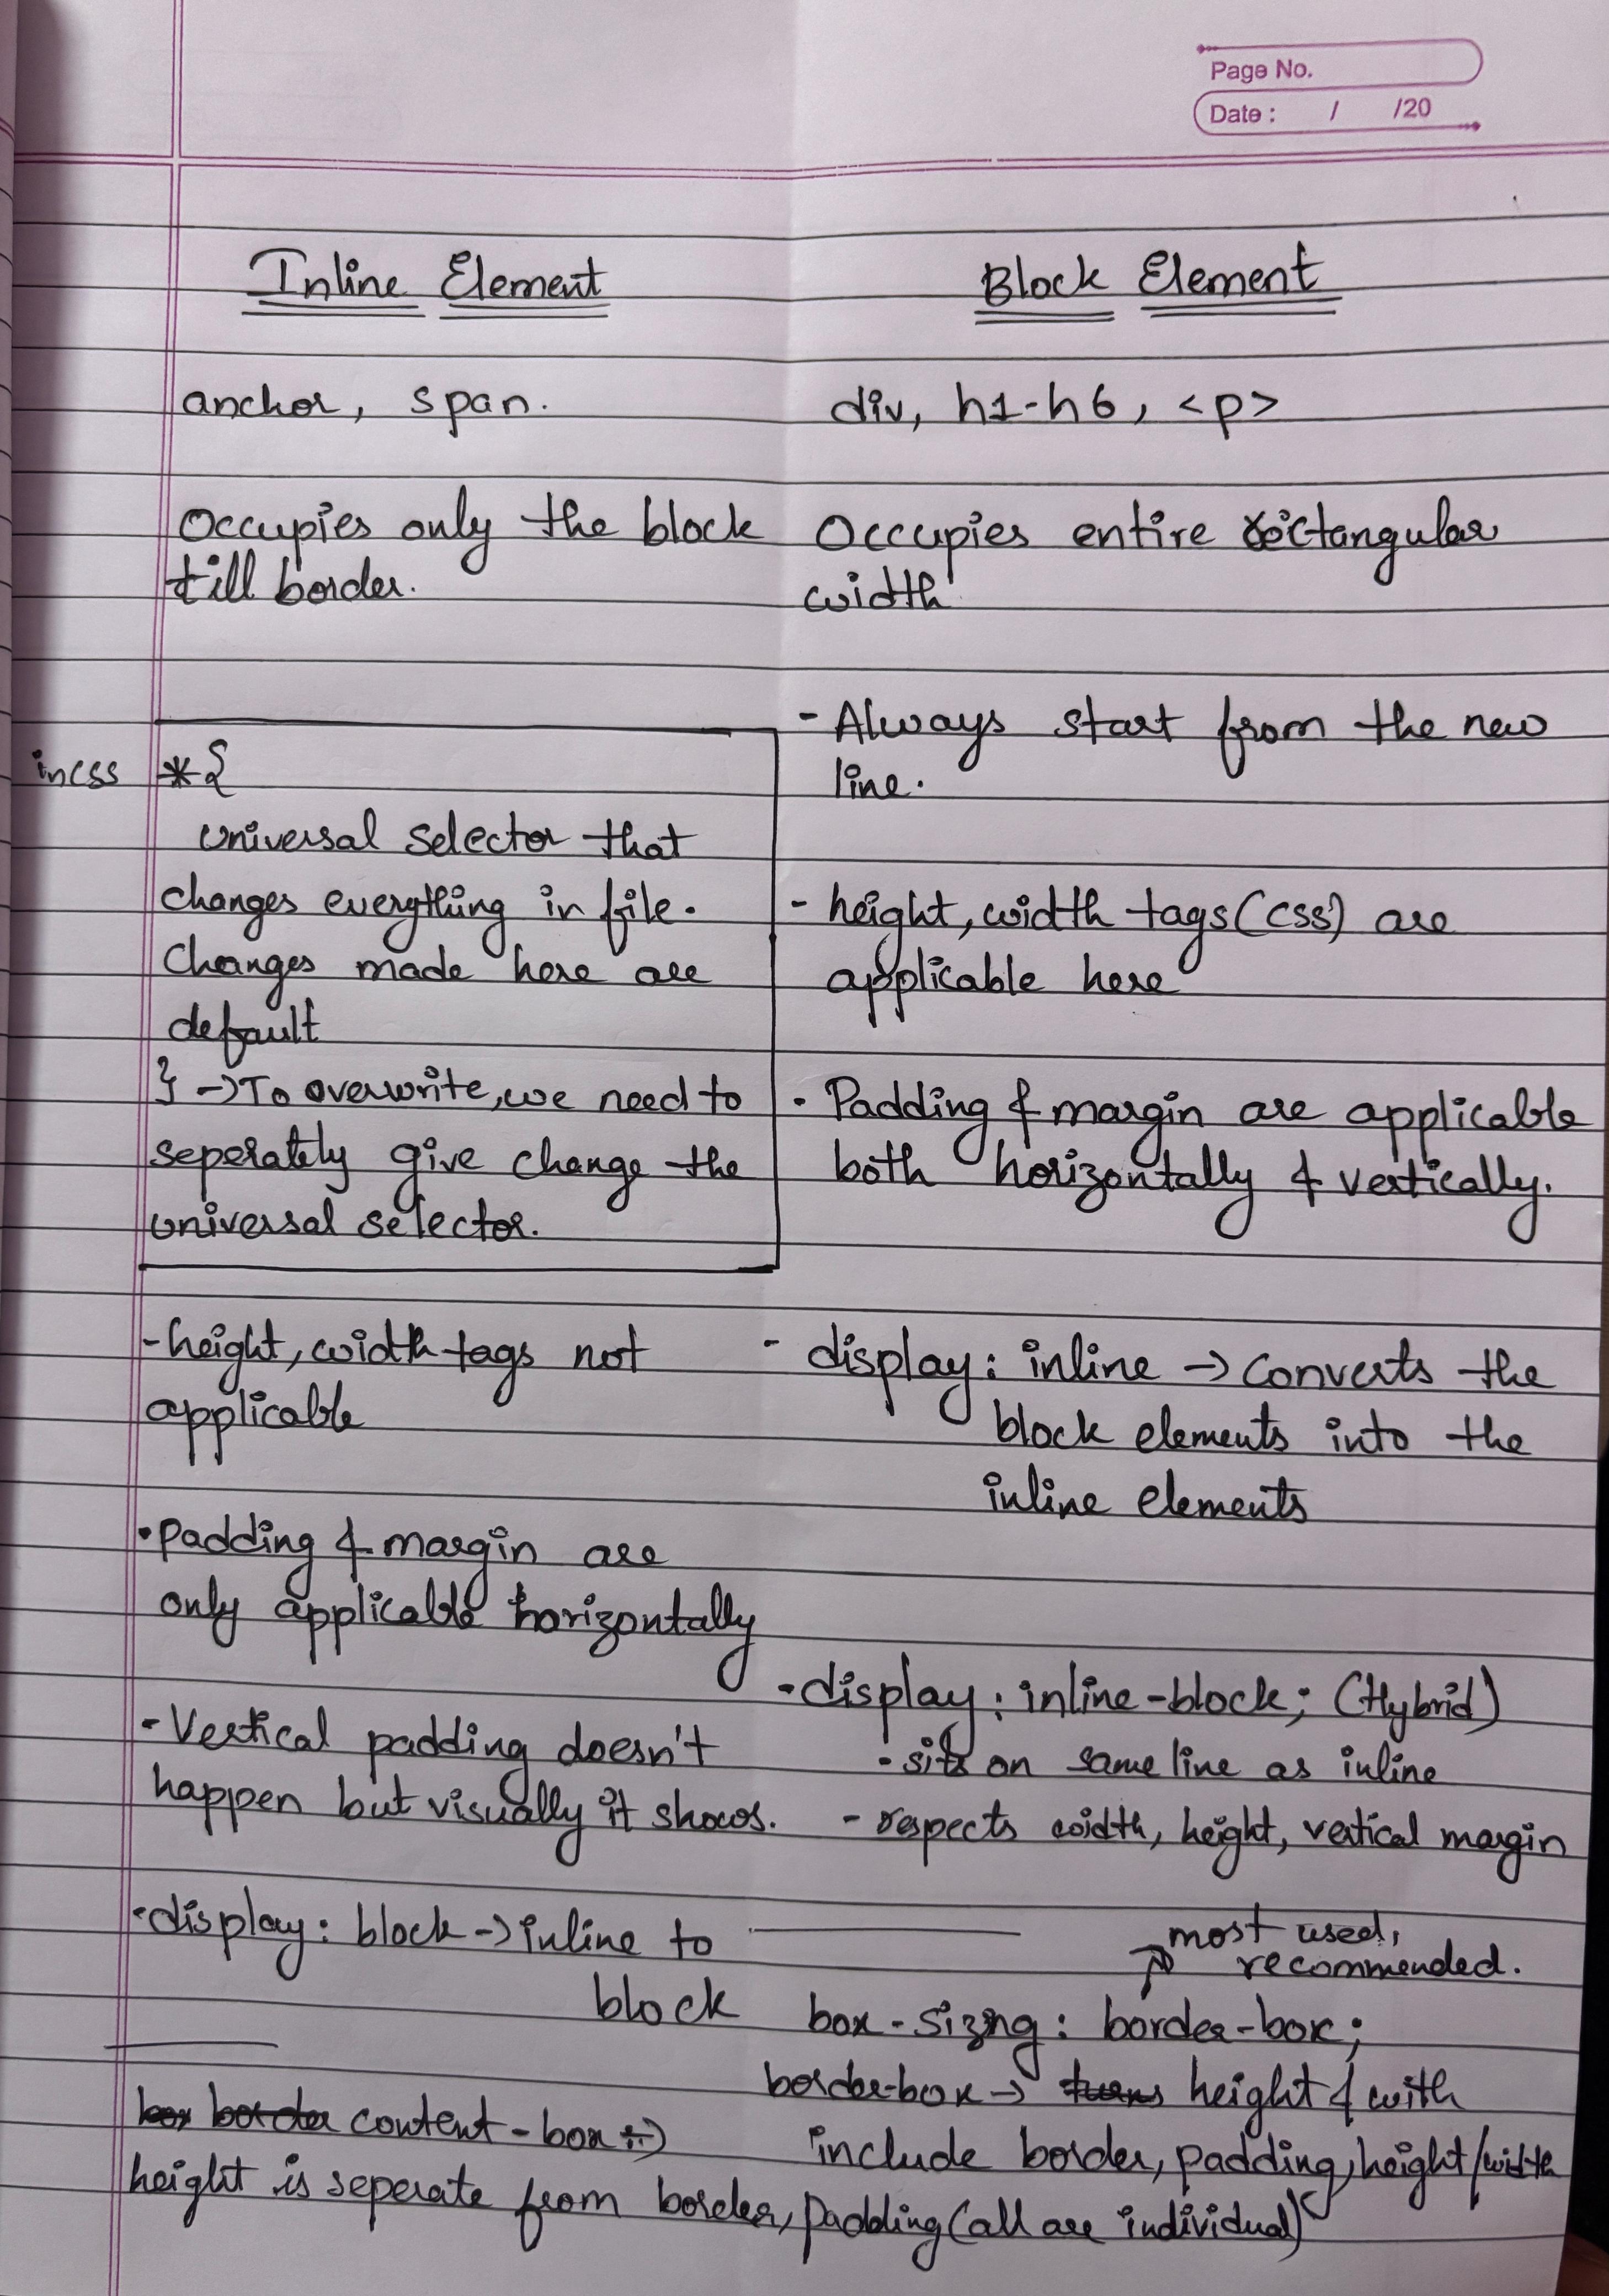 Page No.
Date : / /20
Inline Element
anchor, span.
Occupies only the block
till border.
in css *{
universal selector that
changes everything in file.
changes made here are
default
} → To overwrite, we need to
seperately give change the
universal selector.
- height, width tags not
applicable
• padding & margin are
only applicable horizontally
- Vertical padding doesn't
happen but visually it shows.
• display: block → inline to
block
content-box →
height is seperate from border, padding (all are individual)
Block Element
div, h1-h6, <p>
Occupies entire rectangular
width
- Always start from the new
line.
- height, width tags (css) are
applicable here
• Padding & margin are applicable
both horizontally & vertically.
- display: inline → converts the
block elements into the
inline elements
• display: inline-block; (Hybrid)
- sits on same line as inline
- respects width, height, vertical margin
most used,
recommended.
box-sizing: border-box;
border-box → height & with
include border, padding, height/width